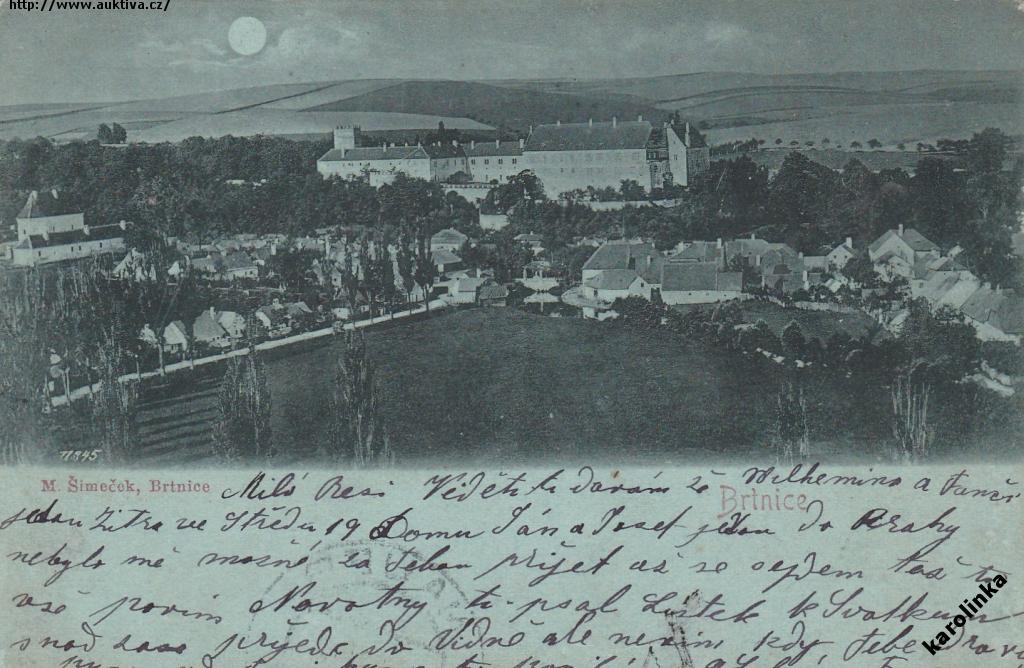 http://www.auktiva.cz/
11845
M. Šimeček, Brtnice
Brtnice
Milá Resi Věděti ti davám že Wilhemina a
jedou Zitra ve Středu 19 Domu Ján a Josef jedou do Prahy
nebylo mě možně za Tebou přijet až se sejdem tož ti
vše povim Novotny ti psal Listek k Svatku
snad zass přijede do Vidně ale nevim kdy Tebe
karolinka